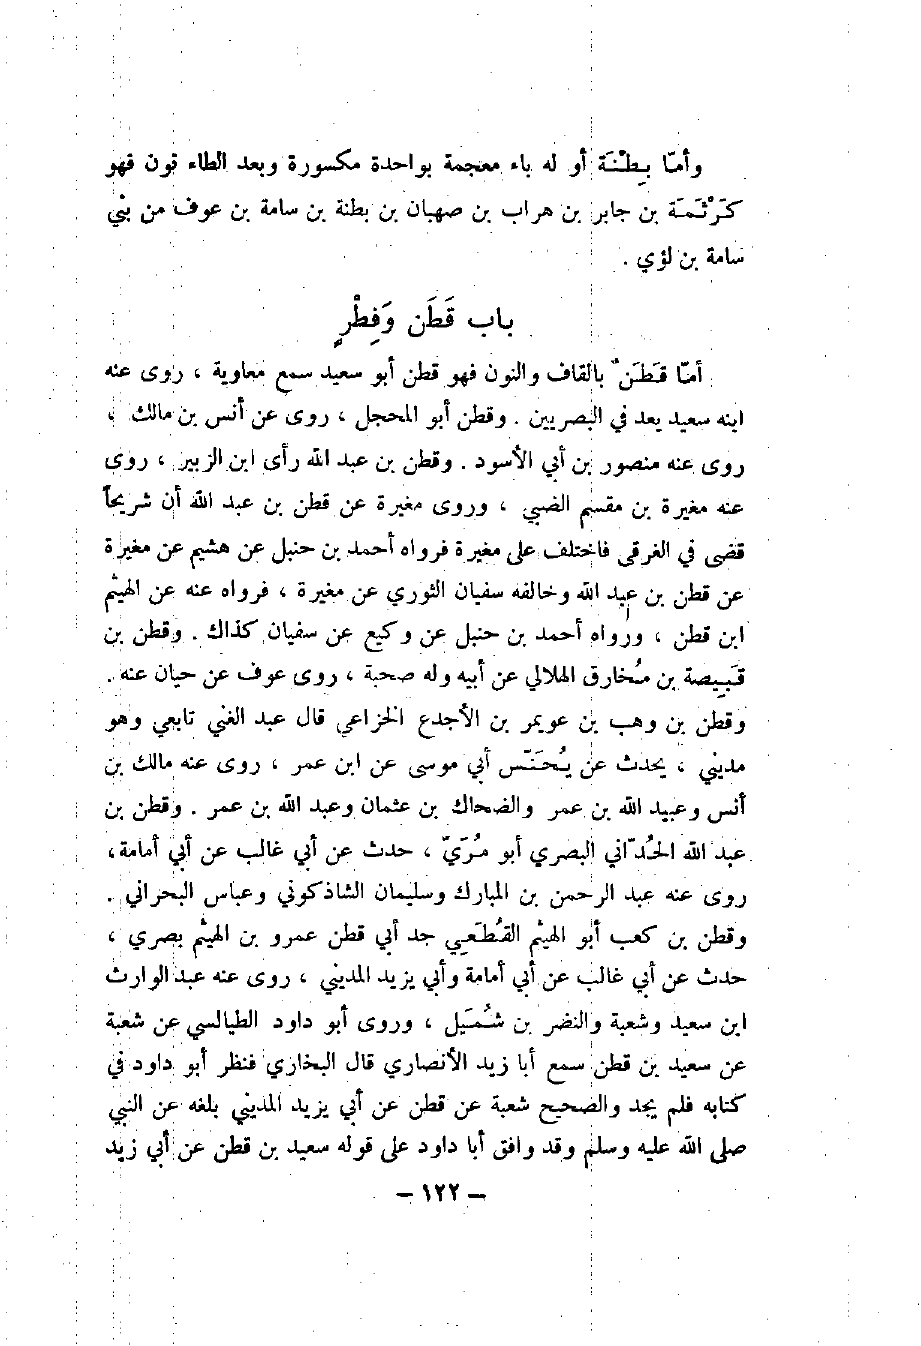 وأمّا بِطْنَة أو له باء معجمة بواحدة مكسورة وبعد الطاء نون فهو
كَرْثَمَة بن جابر بن هراب بن صهبان بن بطنة بن سامة بن عوف من بني
سامة بن لؤي .
باب قَطَن وَفِطْرٍ
أمّا قَطَنٌ بالقاف والنون فهو قطن أبو سعيد سمع معاوية ، روى عنه
ابنه سعيد يعد في البصريين . وقطن أبو المحجل ، روى عن أنس بن مالك ،
روى عنه منصور بن أبي الأسود . وقطن بن عبد الله رأى ابن الزبير ، روى
عنه مغيرة بن مقسم الضبي ، وروى مغيرة عن قطن بن عبد الله أن شريحاً
قضى في الغرقى فاختلف على مغيرة فرواه أحمد بن حنبل عن هشيم عن مغيرة
عن قطن بن عبد الله وخالفه سفيان الثوري عن مغيرة ، فرواه عنه عن الهيثم
ابن قطن ، ورواه أحمد بن حنبل عن وكيع عن سفيان كذاك . وقطن بن
قَبِيصة بن مُخارق الهلالي عن أبيه وله صحبة ، روى عوف عن حيان عنه .
وقطن بن وهب بن عويمر بن الأجدع الخزاعي قال عبد الغني تابعي وهو
مديني ، يحدث عن يُحَنّس أبي موسى عن ابن عمر ، روى عنه مالك بن
أنس وعبيد الله بن عمر والضحاك بن عثمان وعبد الله بن عمر . وقطن بن
عبد الله الحُدّاني البصري أبو مُرَيّ ، حدث عن أبي غالب عن أبي أمامة ،
روى عنه عبد الرحمن بن المبارك وسليمان الشاذكوني وعباس البحراني .
وقطن بن كعب أبو الهيثم القُطَعي جد أبي قطن عمرو بن الهيثم بصري ،
حدث عن أبي غالب عن أبي أمامة وأبي يزيد المديني ، روى عنه عبد الوارث
ابن سعيد وشعبة والنضر بن شُمَيل ، وروى أبو داود الطيالسي عن شعبة
عن سعيد بن قطن سمع أبا زيد الأنصاري قال البخاري فنظر أبو داود في
كتابه فلم يجد والصحيح شعبة عن قطن عن أبي يزيد المديني بلغه عن النبي
صلى الله عليه وسلم وقد وافق أبا داود على قوله سعيد بن قطن عن أبي زيد
– ١٢٢ –